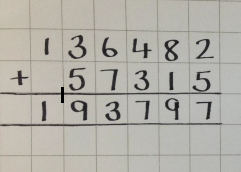 1 3 6 4 8 2
+ 5 7 3 1 5
1 9 3 7 9 7